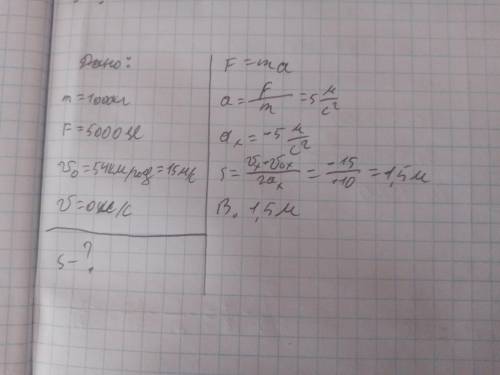 Дано:
m=1000кг
F=5000Н
v₀=54км/год=15м/с
v=0км/с
s-?
F=ma
a=F/m=5 м/с²
aₓ=-5 м/с²
s=(vₓ-v₀ₓ)/2aₓ=-15/-10=1,5м
В. 1,5м